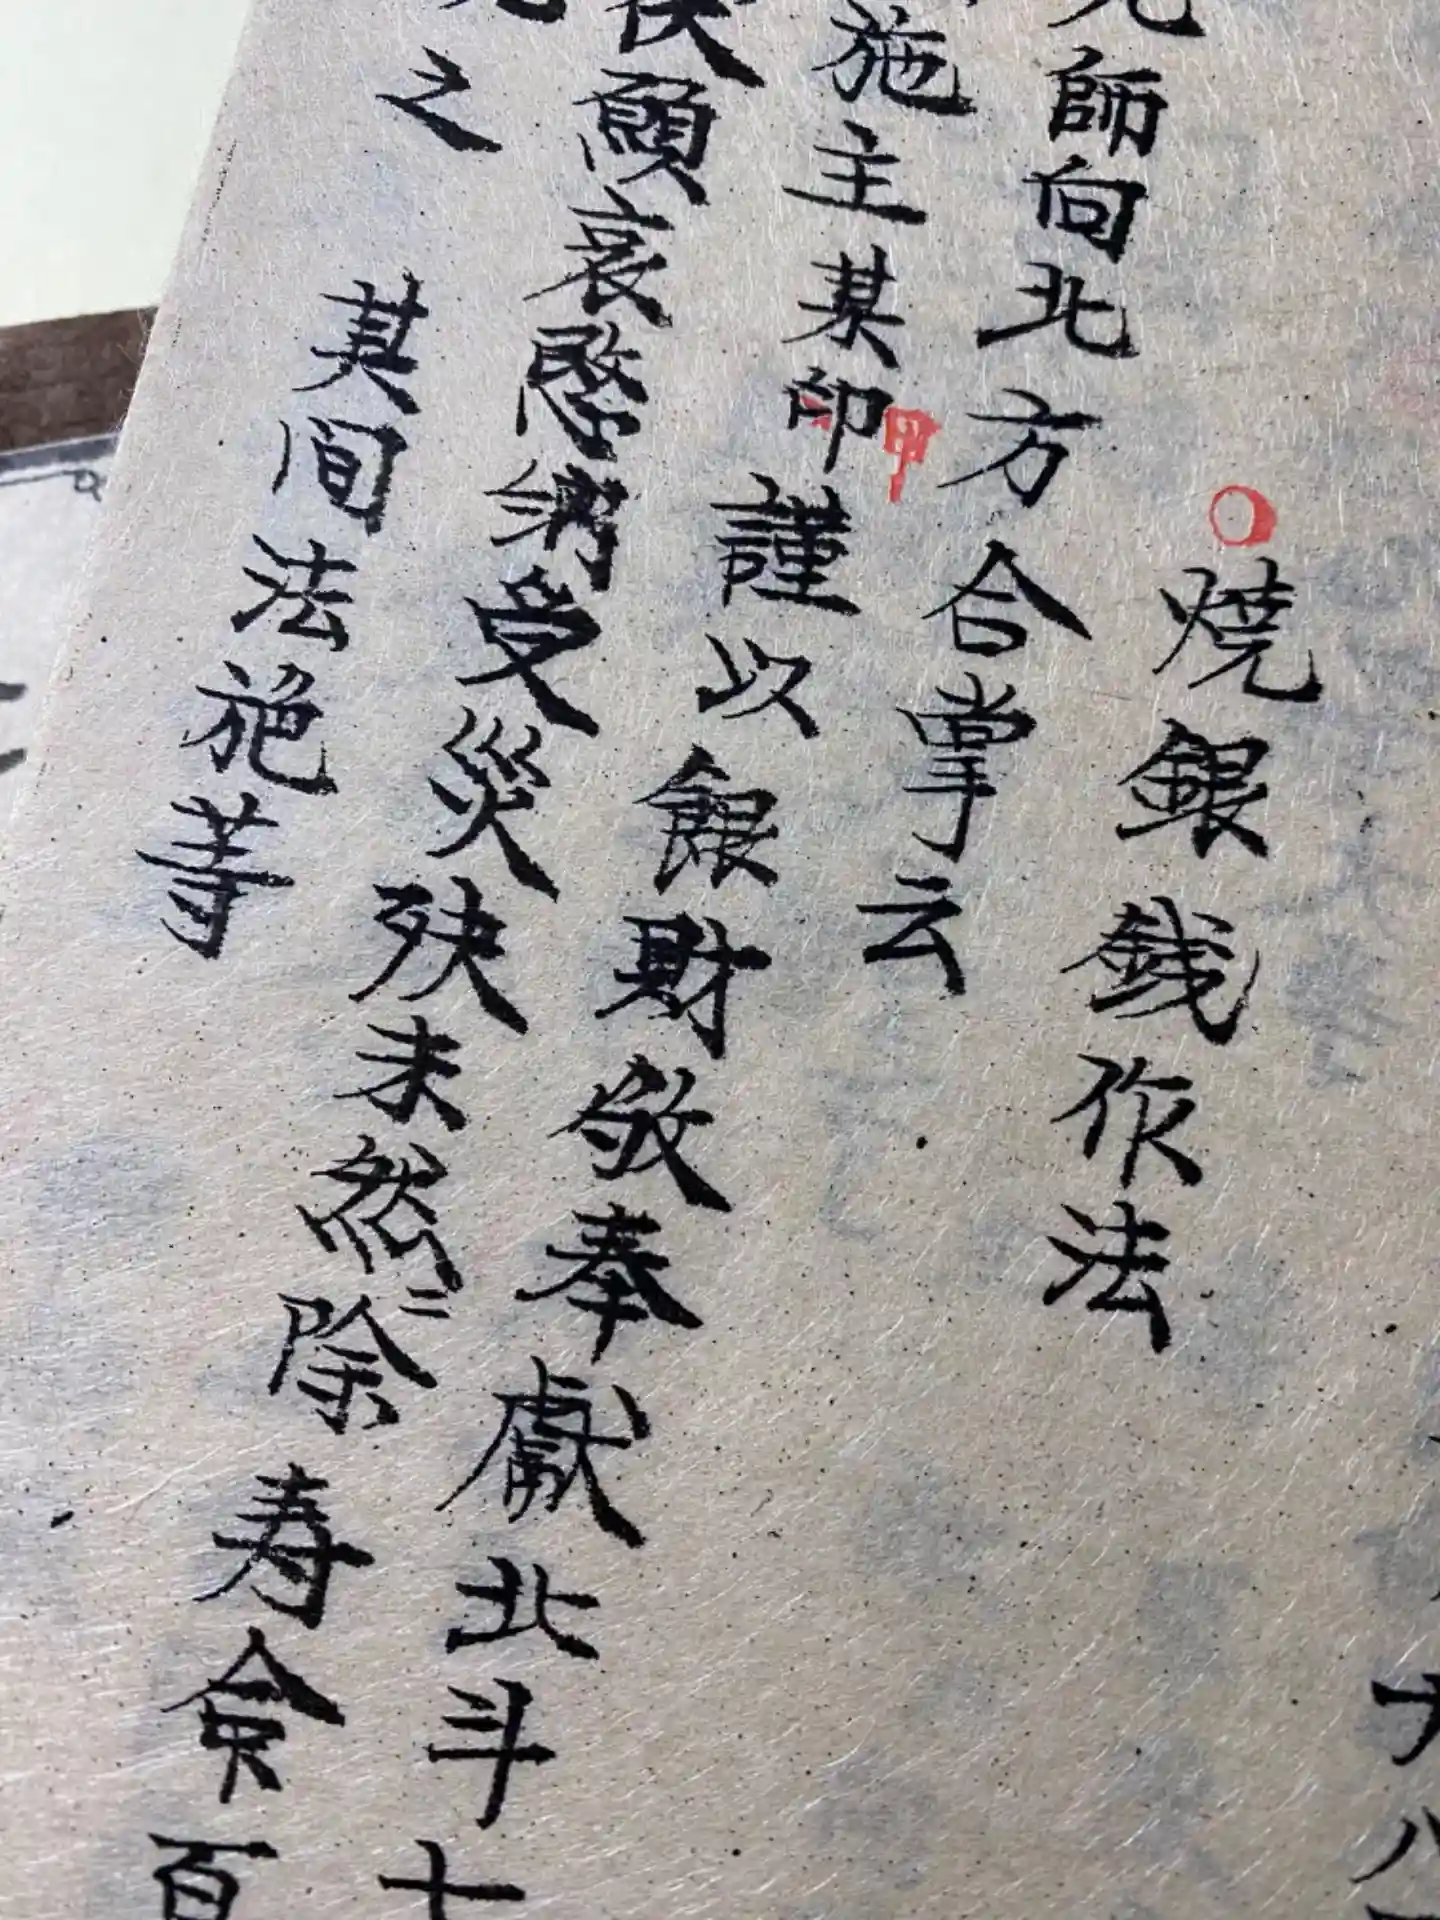 燒銀銭作法
師向北方合掌云
施主某印甲謹以銀財敬奉獻北斗七
伏願哀愍納受災殃未然ニ除寿命百
之 其間法施等